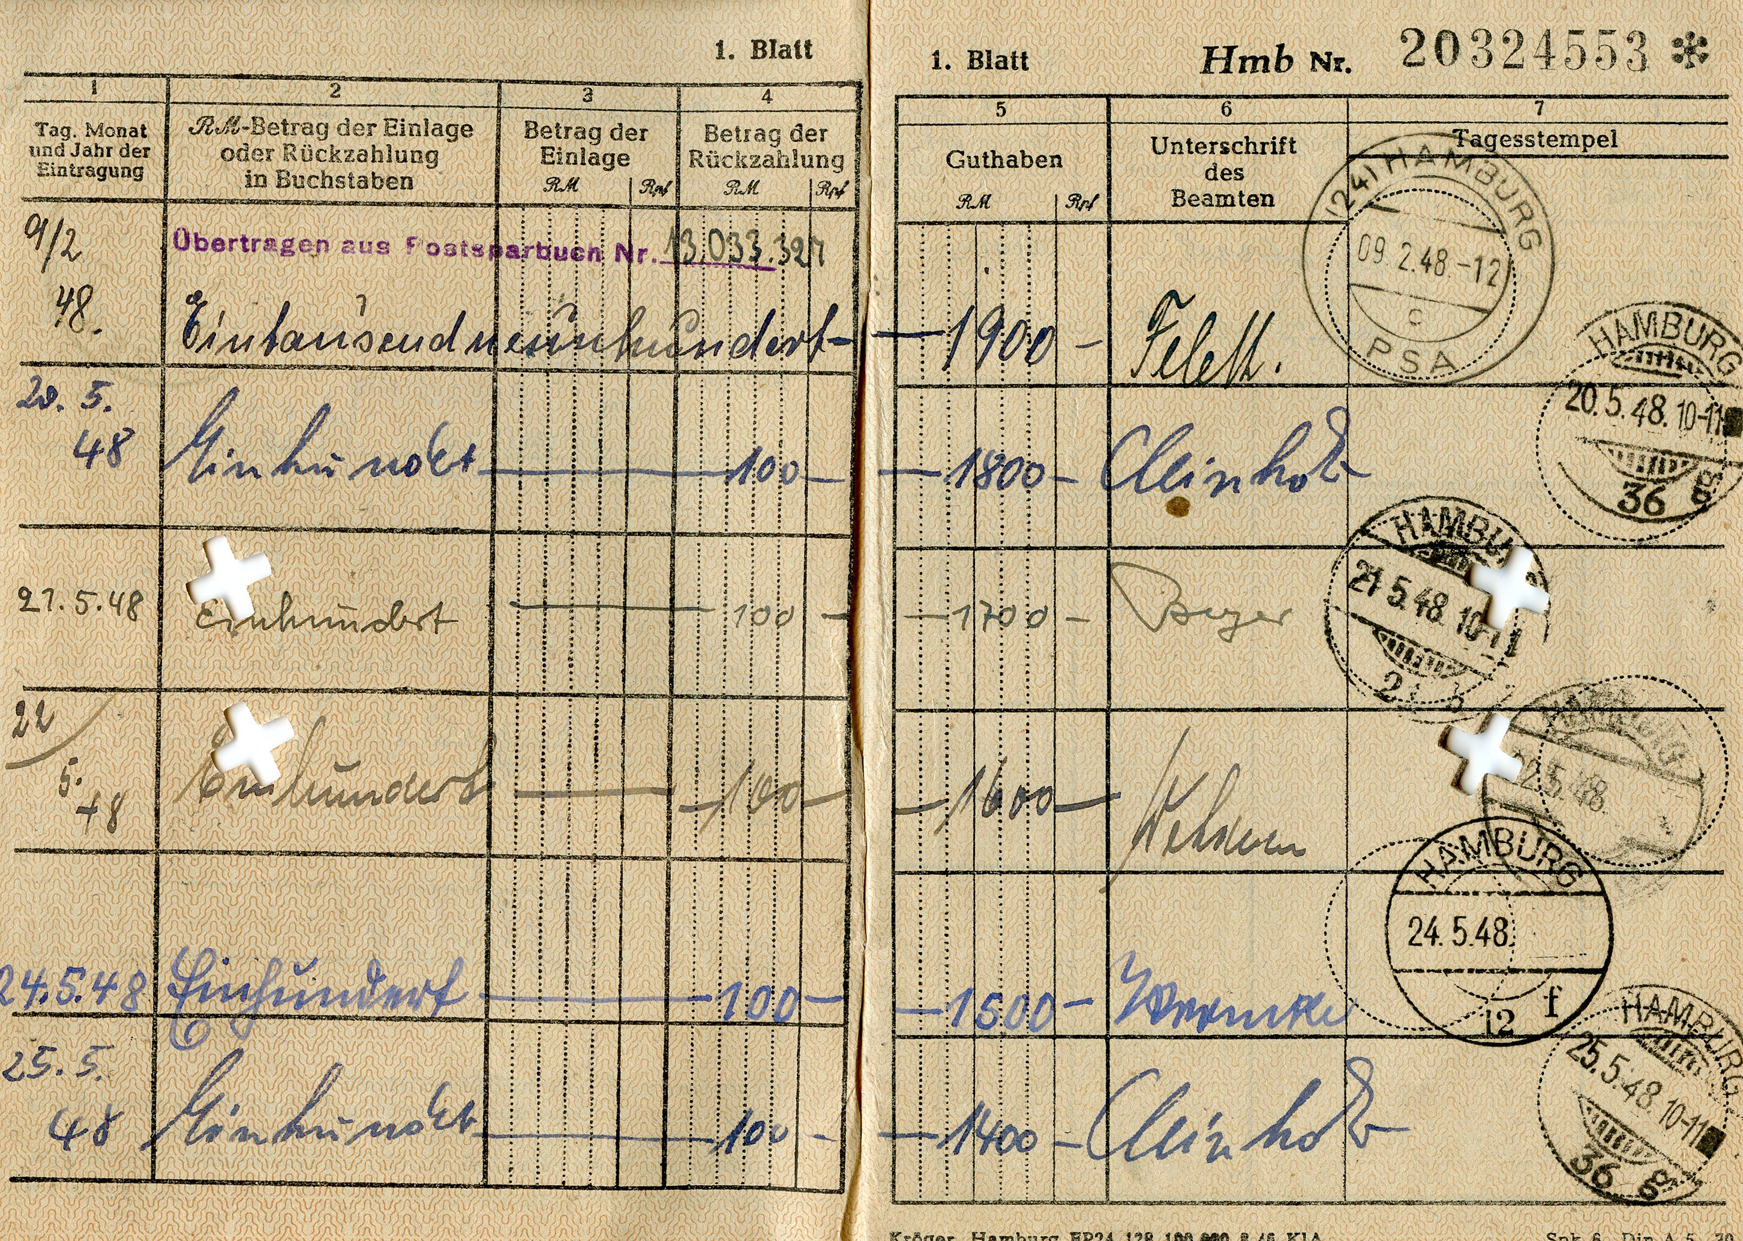 1. Blatt
1 2 3 4
Tag. Monat und Jahr der Eintragung
RM-Betrag der Einlage oder Rückzahlung in Buchstaben
Betrag der Einlage
RM Rpf
Betrag der Rückzahlung
RM Rpf
9/2 48.
Übertragen aus Postsparbuch Nr. 13.033.327
Eintausendneunhundert-
20. 5. 48 Einhundert — 100 —
21.5.48 Einhundert — 100 —
22 5. 48 Einhundert — 100 —
24.5.48 Einhundert — 100 —
25.5. 48 Einhundert — 100 -
1. Blatt Hmb Nr. 20324553 *
5 6 7
Guthaben
RM Rpf
Unterschrift des Beamten
Tagesstempel
— 1900 -
(24) HAMBURG
09.2.48.-12
c
PSA
— 1800 —
HAMBURG
20.5.48.10-11
36 g
— 1700 - Beyer
HAMBURG
21.5.48.10-11
— 1600 —
HAMBURG
22.5.48.
— 1500 —
HAMBURG
24.5.48.
12 f
— 1400 —
HAMBURG
25.5.48.10-11
36 g
Kröger, Hamburg